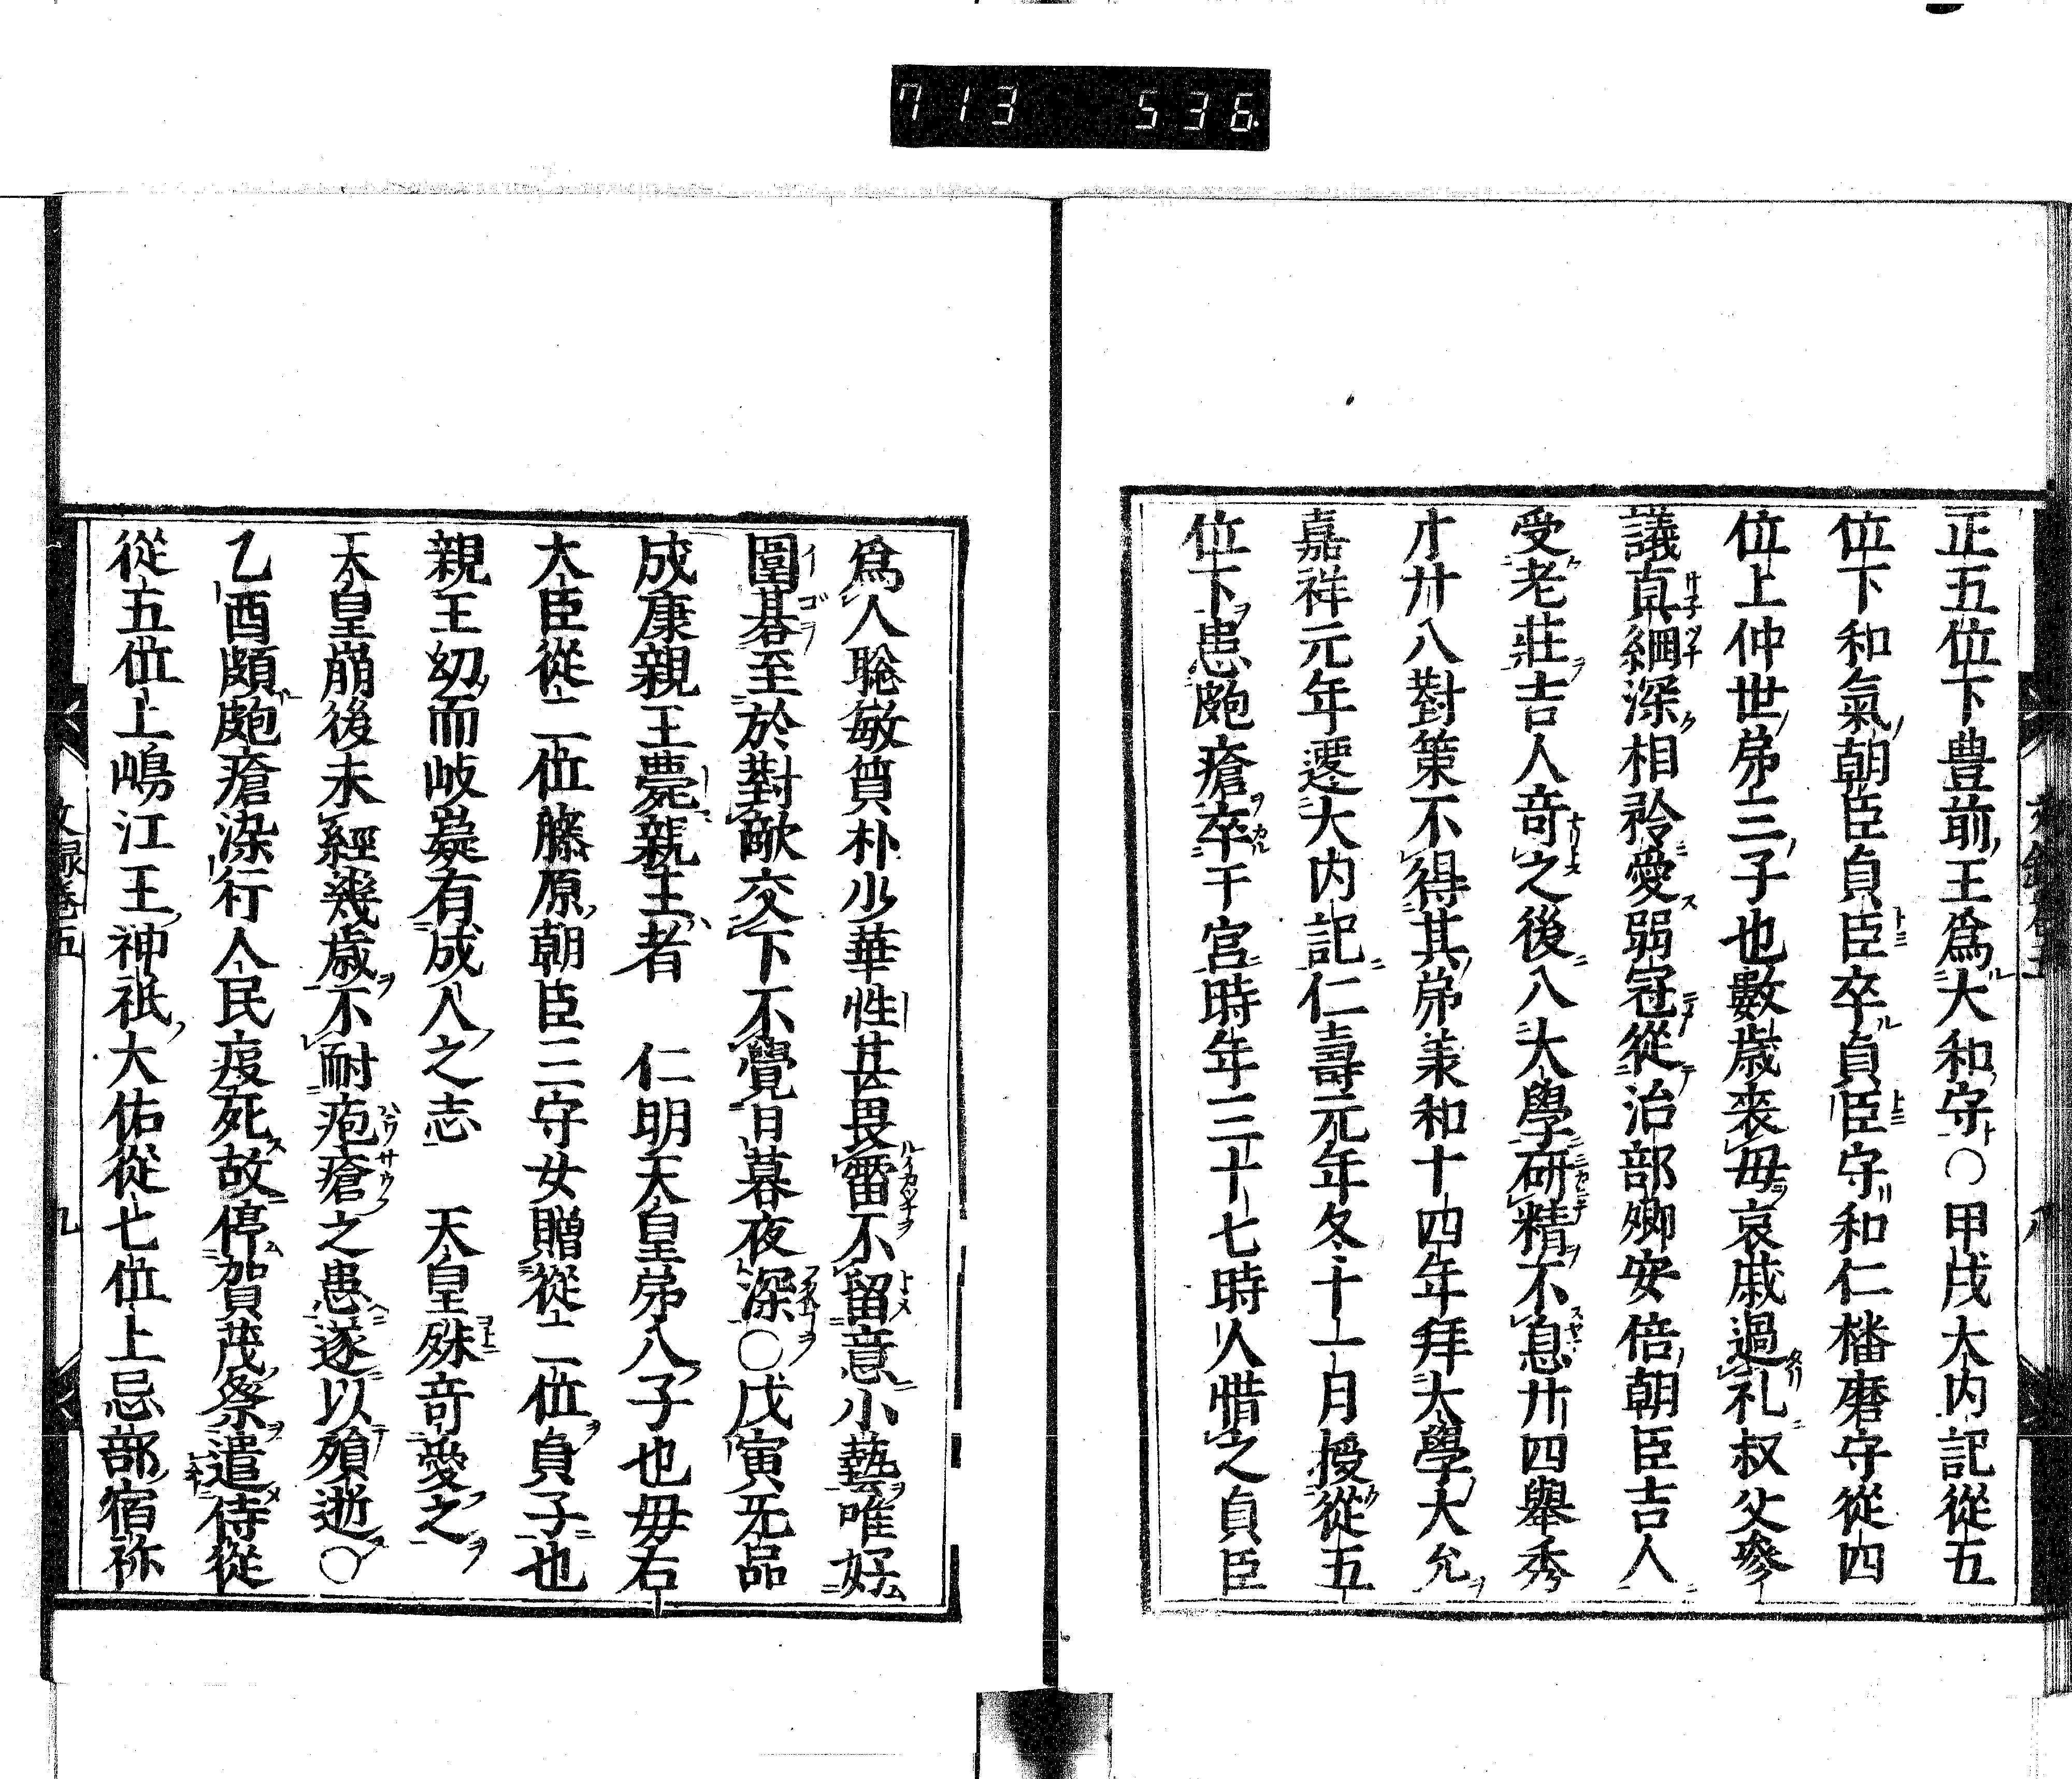 713 536
正五位下豊前王爲大和守○甲戌大内記從五
位下和氣朝臣貞臣卒貞臣守和仁播磨守從四
位上仲世弟三子也數歲喪母哀戚過礼叔父參
議眞綱深相矜愛弱冠從治部卿安倍朝臣吉人
受老莊吉人奇之後入大學研精不息廿四擧秀
才廿八對策不得其弟羕和十四年拜大學大允
嘉祥元年遷大内記仁壽元年冬十一月授從五
位下患皰瘡卒于官時年三十七時人惜之貞臣
爲人聡敏質朴少華性甚畏雷不留意小藝唯好
圍碁至於對敵交下不覺日暮夜深○戊寅无品
成康親王薨親王者 仁明天皇弟八子也母右
大臣從二位藤原朝臣三守女贈從二位貞子也
親王幼而岐嶷有成人之志 天皇殊奇愛之
天皇崩後未經幾歲不耐疱瘡之患遂以殞逝○
乙酉頗皰瘡染行人民疫死故停賀茂祭遣侍從
從五位上嶋江王神祇大佑從七位上忌部宿祢
文録卷五 九